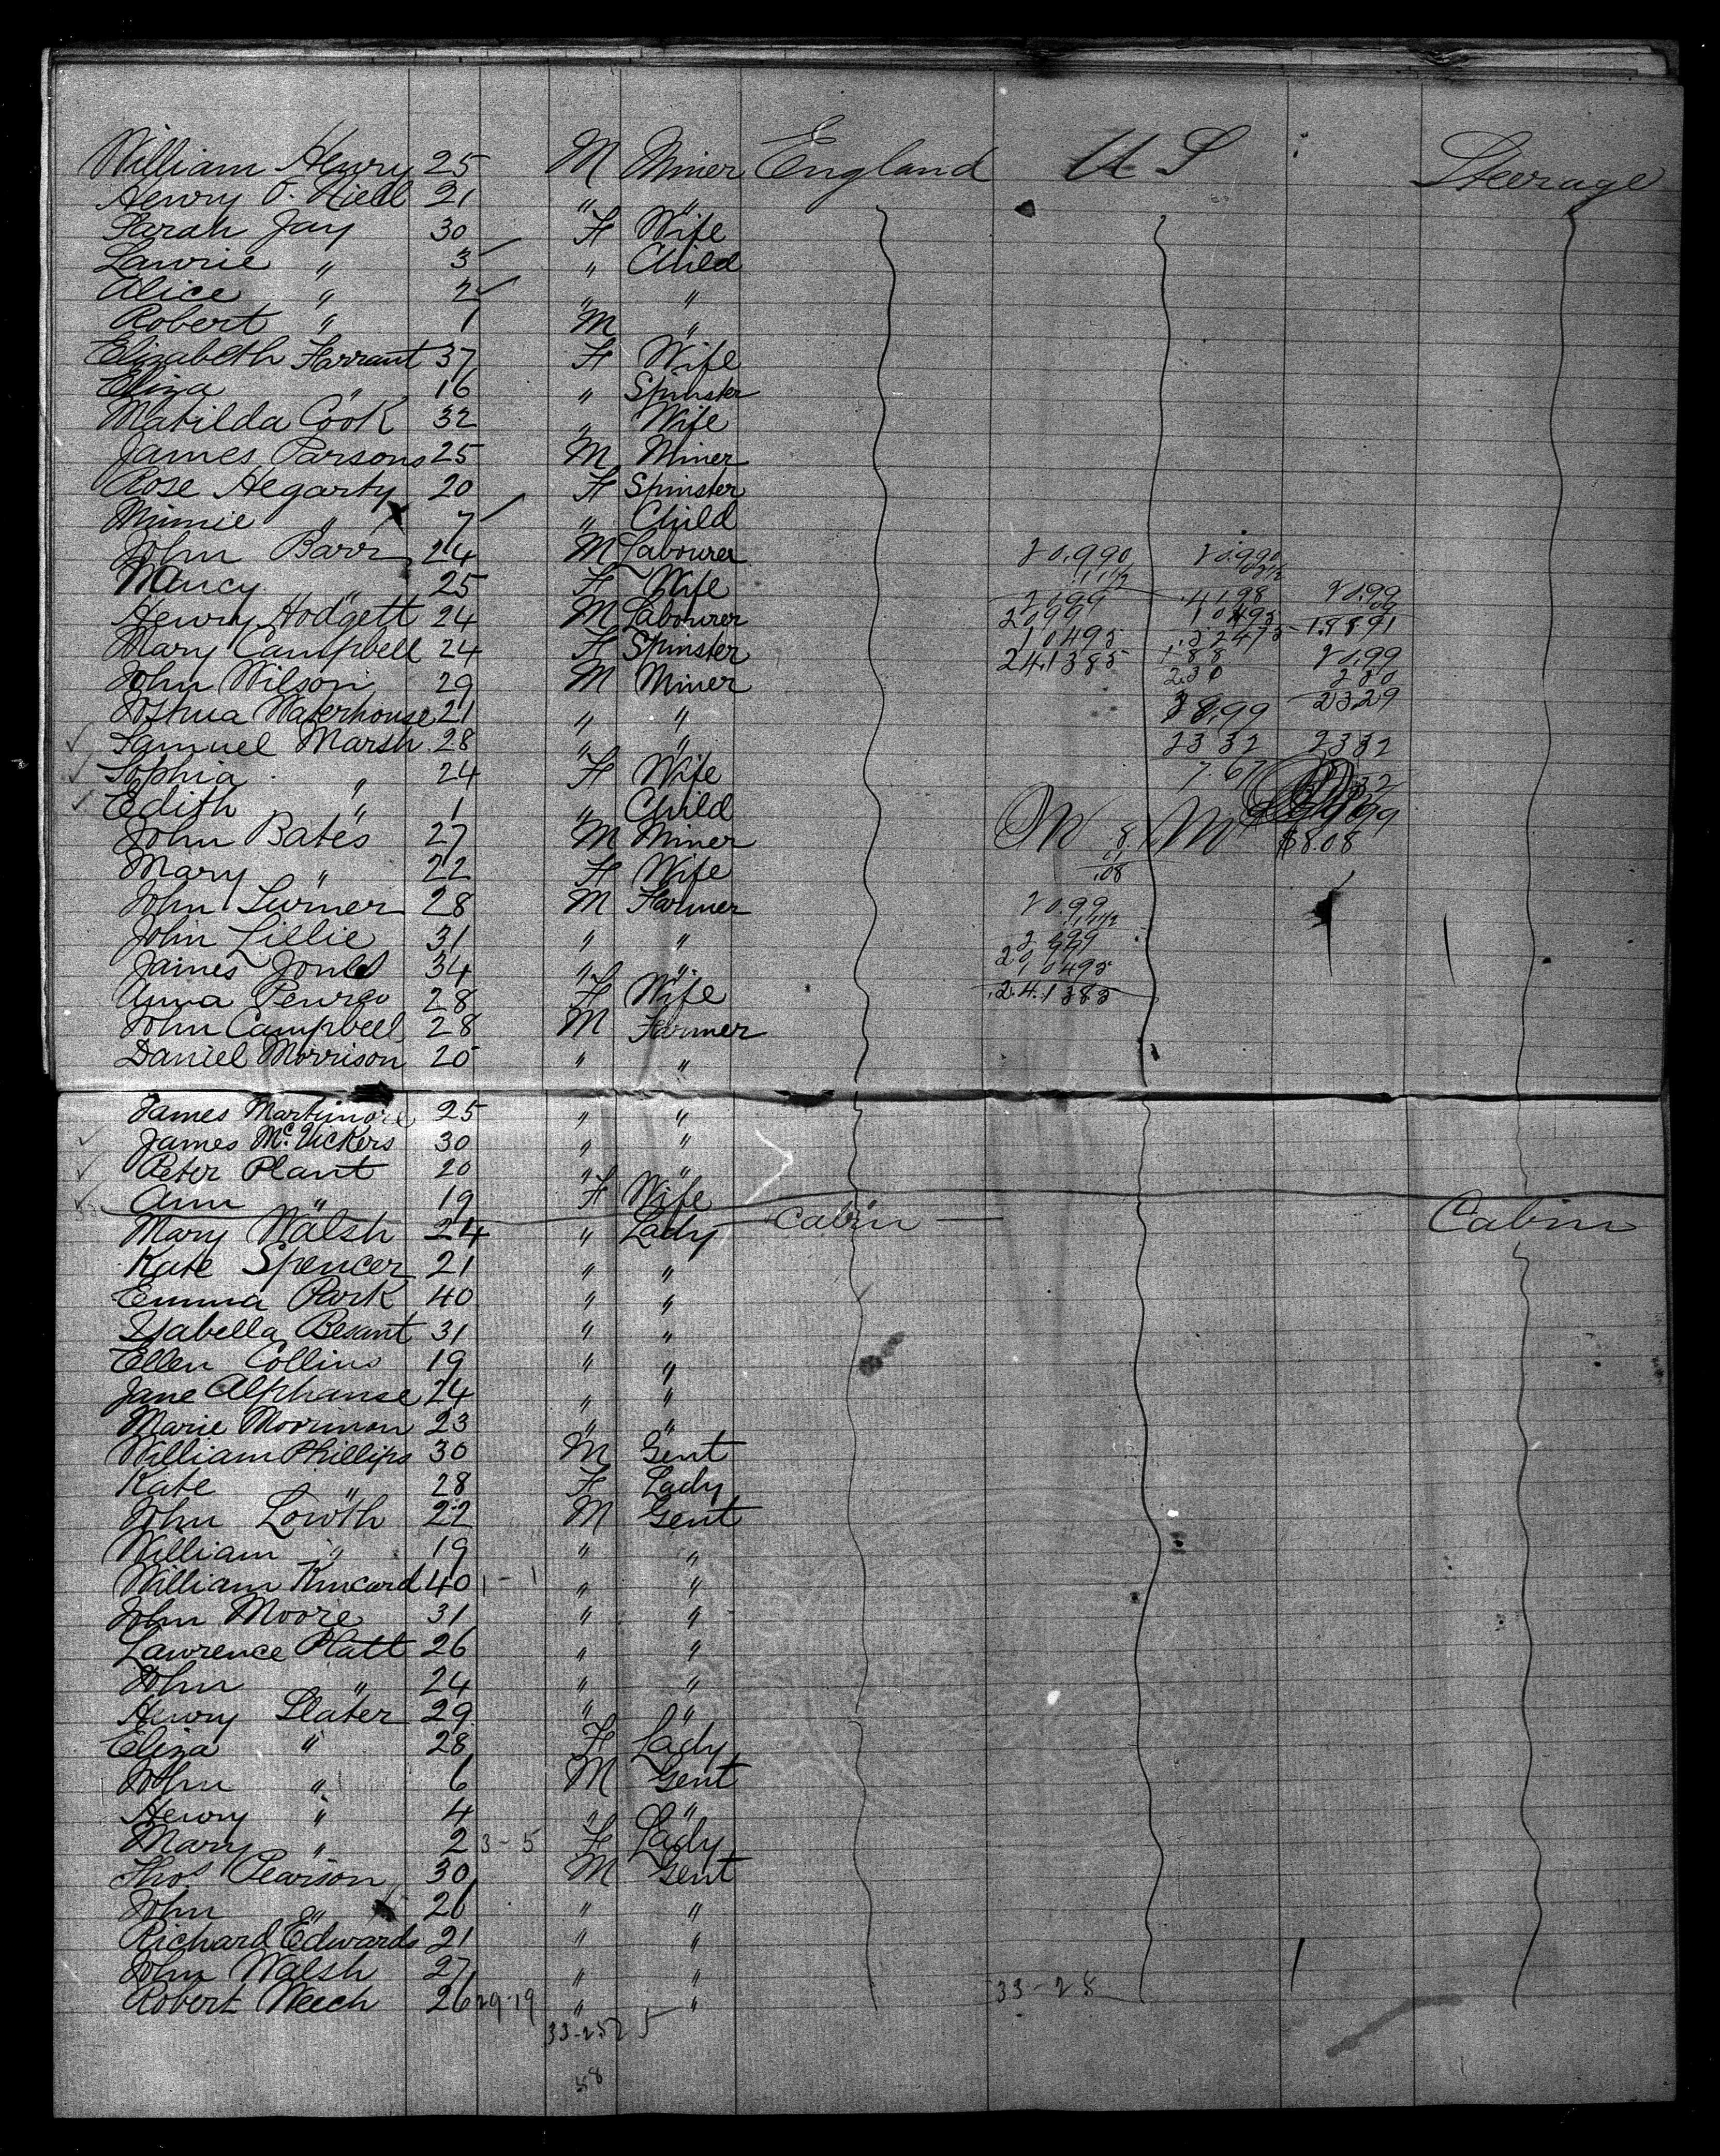 William Henry 25 M Miner England U S Steerage
Henry O. Niell 21 " "
Sarah Jay 30 F Wife
Lawrie " 3 " Child
Alice " 2 " "
Robert " 1 M "
Elizabeth Farrant 37 F Wife
Eliza " 16 " Spinster
Matilda Cook 32 " Wife
James Parsons 25 M Miner
Rose Hegarty 20 F Spinster
Minnie " 7 " Child
John Barr 24 M Labourer
Nancy " 25 F Wife
Henry Hodgett 24 M Labourer
Mary Campbell 24 F Spinster
John Wilson 29 M Miner
Joshua Waterhouse 21 " "
Samuel Marsh 28 " "
Sophia " 24 F Wife
Edith " 1 " Child
John Bates 27 M Miner
Mary " 22 F Wife
John Turner 28 M Farmer
John Lillie 31 " "
James Jones 34 " "
Anna 28 F Wife
John Campbell 28 M Farmer
Daniel Morrison 20 " "
James Martimore 25 " "
James McVickers 30 " "
Peter Plant 20 " "
Ann " 19 F Wife
Mary Walsh 24 " Lady Cabin Cabin
Kate Spencer 21 " "
Emma Park 40 " "
Isabella Besant 31 " "
Ellen Collins 19 " "
Jane Alphanse 24 " "
Marie 23 " "
William Phillips 30 M Gent
Kate " 28 F Lady
John Lowth 22 M Gent
William " 19 " "
William Kincard 40 1-1 " "
John Moore 31 " "
Lawrence Platt 26 " "
John " 24 " "
Henry Slater 29 " "
Eliza " 28 F Lady
John " 6 M Gent
Henry " 4 " "
Mary " 2 3-5 F Lady
Thos Pearson 30 M Gent
John " 26 " "
Richard Edwards 21 " "
John Walsh 27 " "
Robert Weech 26 29-19 " " 33-28
58